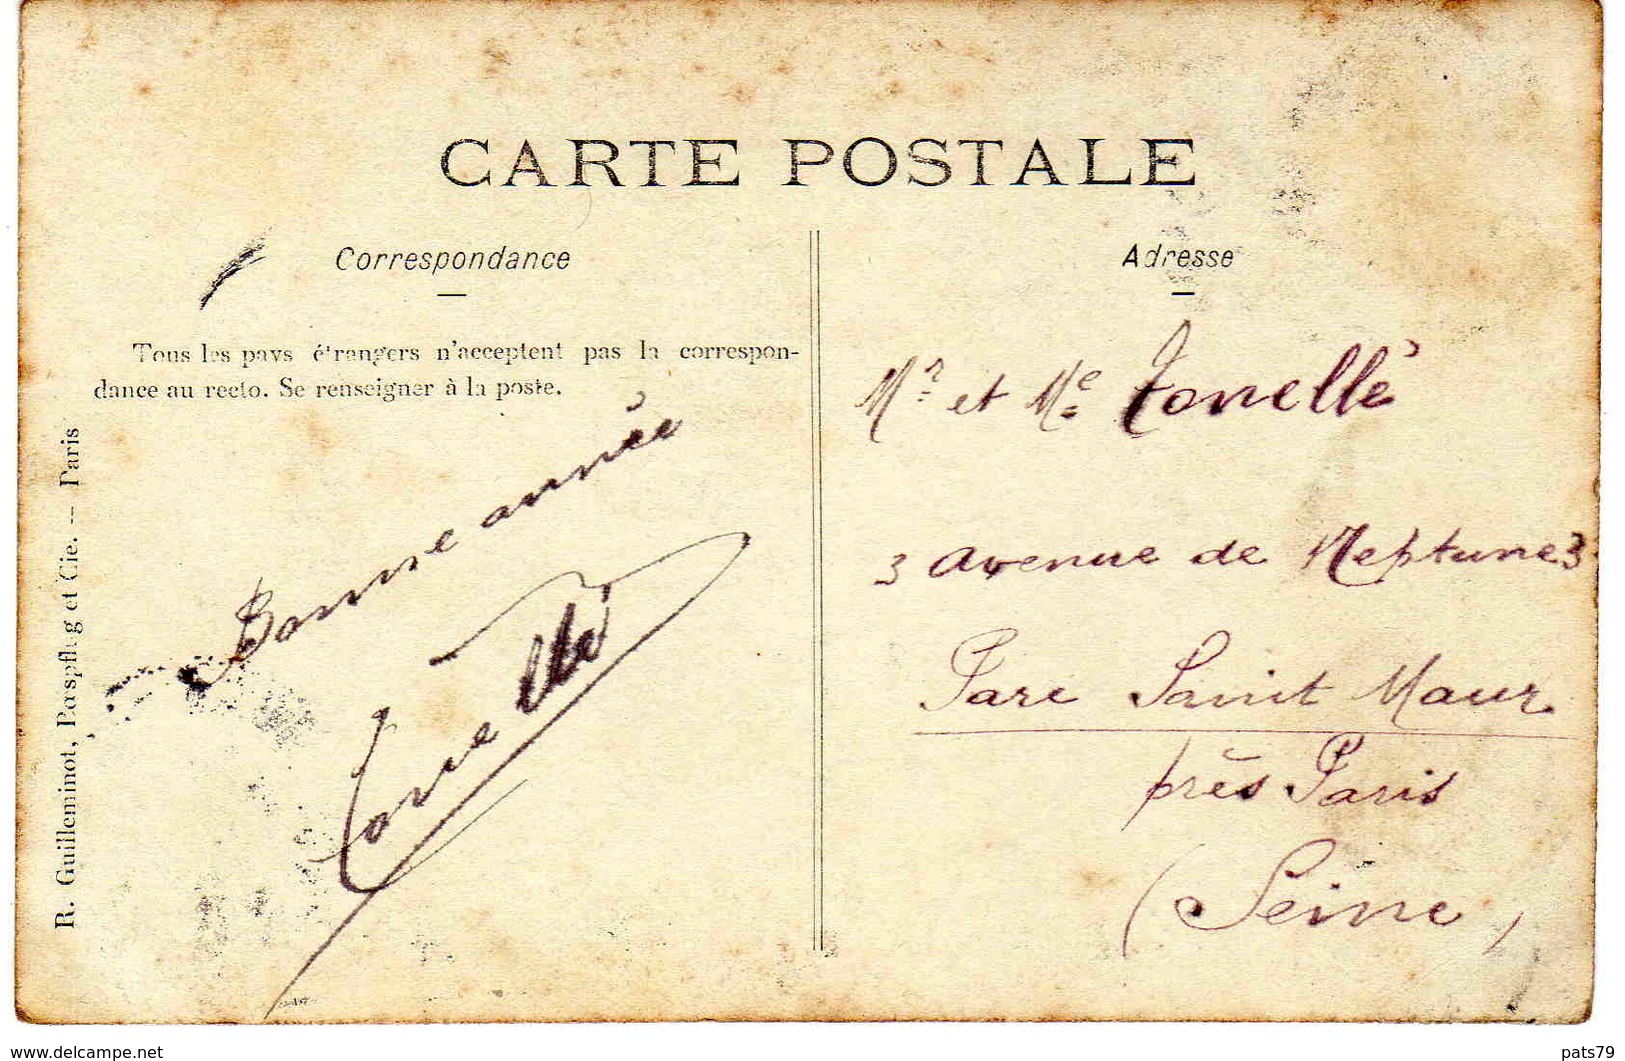 CARTE POSTALE
Correspondance
Tous les pays étrangers n'acceptent pas la correspon-
dance au recto. Se renseigner à la poste.
R. Guilleminot, Bœspflug et Cie. -- Paris
Bonne année
Tonellé
Adresse
Mr et Me Tonellé
3 avenue de Neptune 3
Parc Saint Maur
près Paris
(Seine)
www.delcampe.net
pats79